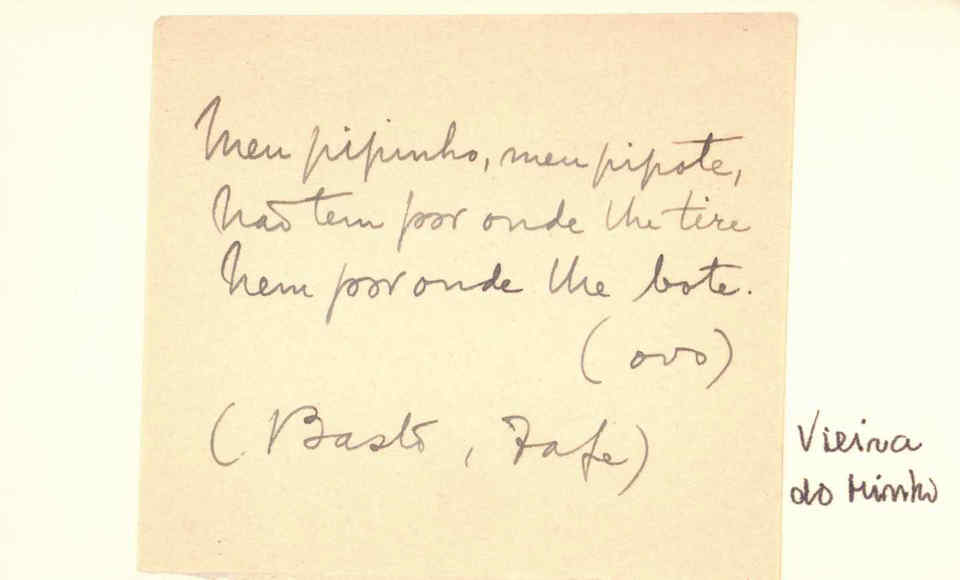 Meu pipinho, meu pipote,
Não tem por onde lhe tire
Nem por onde lhe bote.
(ovo)
(Basto, Fafe)
Vieira
do Minho